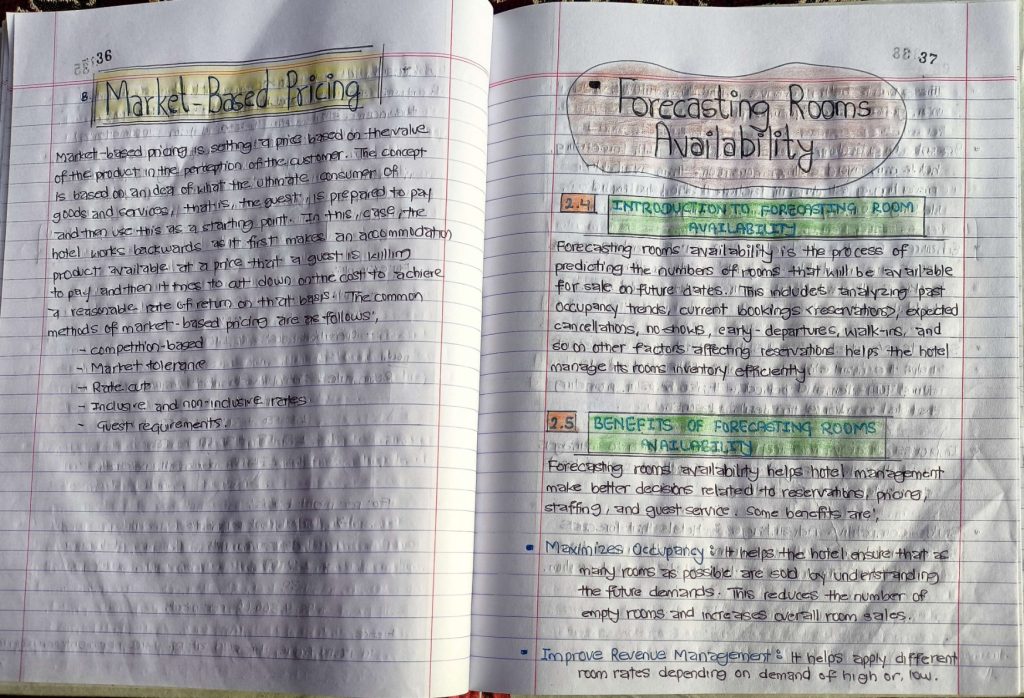 36
B. Market-Based Pricing
Market-based pricing is setting a price based on the value
of the product in the perception of the customer. The concept
is based on an idea of what the ultimate consumer of
goods and services, that is, the guest, is prepared to pay
and then use this as a starting point. In this case, the
hotel works backwards as it first makes an accommodation
product available at a price that a guest is willing
to pay and then it tries to cut down on the cost to achieve
a reasonable rate of return on that basis. The common
methods of market-based pricing are as follows;
- competition-based
- Market tolerance
- Rate cut
- Inclusive and non-inclusive rates
- Guest requirements.
37
• Forecasting Rooms
Availability
2.4 INTRODUCTION TO FORECASTING ROOM
AVAILABILITY
Forecasting rooms availability is the process of
predicting the numbers of rooms that will be available
for sale on future dates. This includes analyzing past
occupancy trends, current bookings <reservations>, expected
cancellations, no shows, early-departures, walk-ins, and
so on other factors affecting reservations helps the hotel
manage its rooms inventory efficiently.
2.5 BENEFITS OF FORECASTING ROOMS
AVAILABILITY
Forecasting rooms availability helps hotel management
make better decisions related to reservations, pricing,
staffing, and guest service. Some benefits are;
• Maximizes Occupancy: It helps the hotel ensure that as
many rooms as possible are sold by understanding
the future demands. This reduces the number of
empty rooms and increases overall room sales.
• Improve Revenue Management: It helps apply different
room rates depending on demand of high or low.